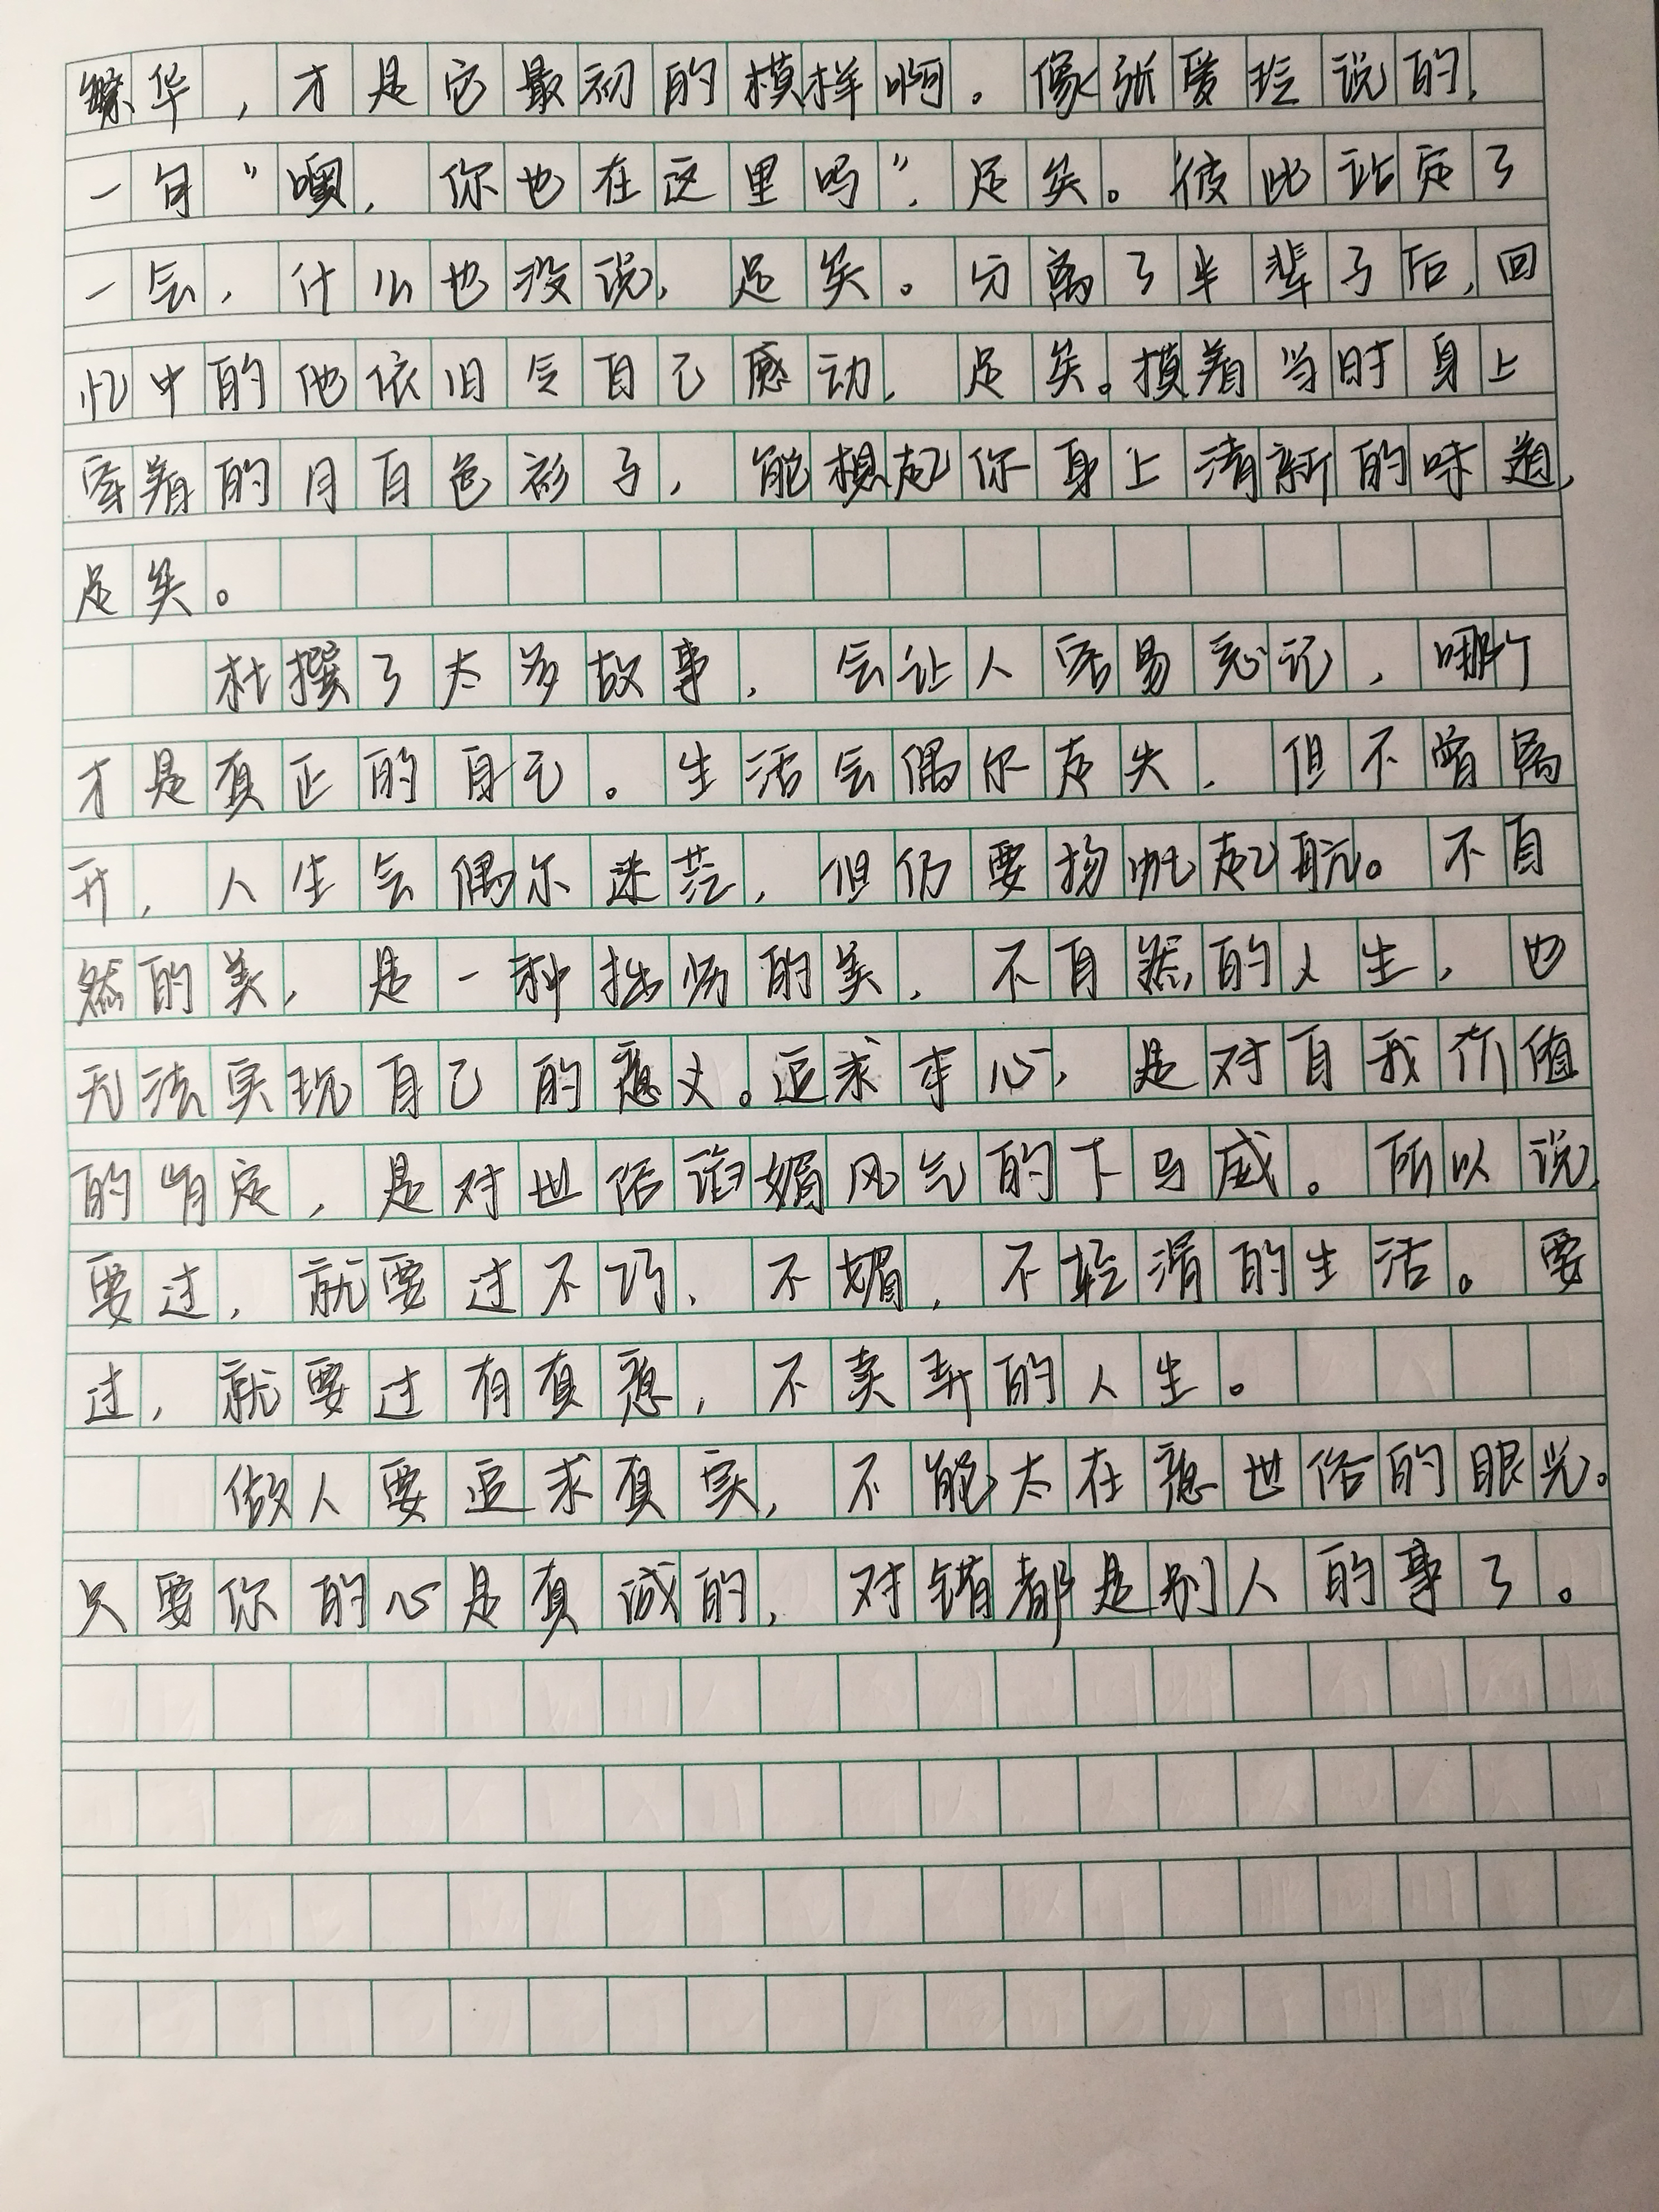 繁华，才是它最初的模样啊。像张爱玲说的，
一句“噢，你也在这里吗”，足矣。彼此站定了
一会，什么也没说，足矣。分离了半辈子后，回
忆中的他依旧令自己感动，足矣。摸着当时身上
穿着的月白色衫子，能想起你身上清新的味道，
足矣。
杜撰了太多故事，会让人容易忘记，哪个
才是真正的自己。生活会偶尔走失，但不曾离
开，人生会偶尔迷茫，但仍要扬帆起航。不自
然的美，是一种拙劣的美，不自然的人生，也
无法实现自己的意义。追求本心，是对自我价值
的肯定，是对世俗谄媚风气的下马威。所以说，
要过，就要过不巧、不媚，不轻滑的生活。要
过，就要过有真意，不卖弄的人生。
做人要追求真实，不能太在意世俗的眼光。
只要你的心是真诚的，对错都是别人的事了。